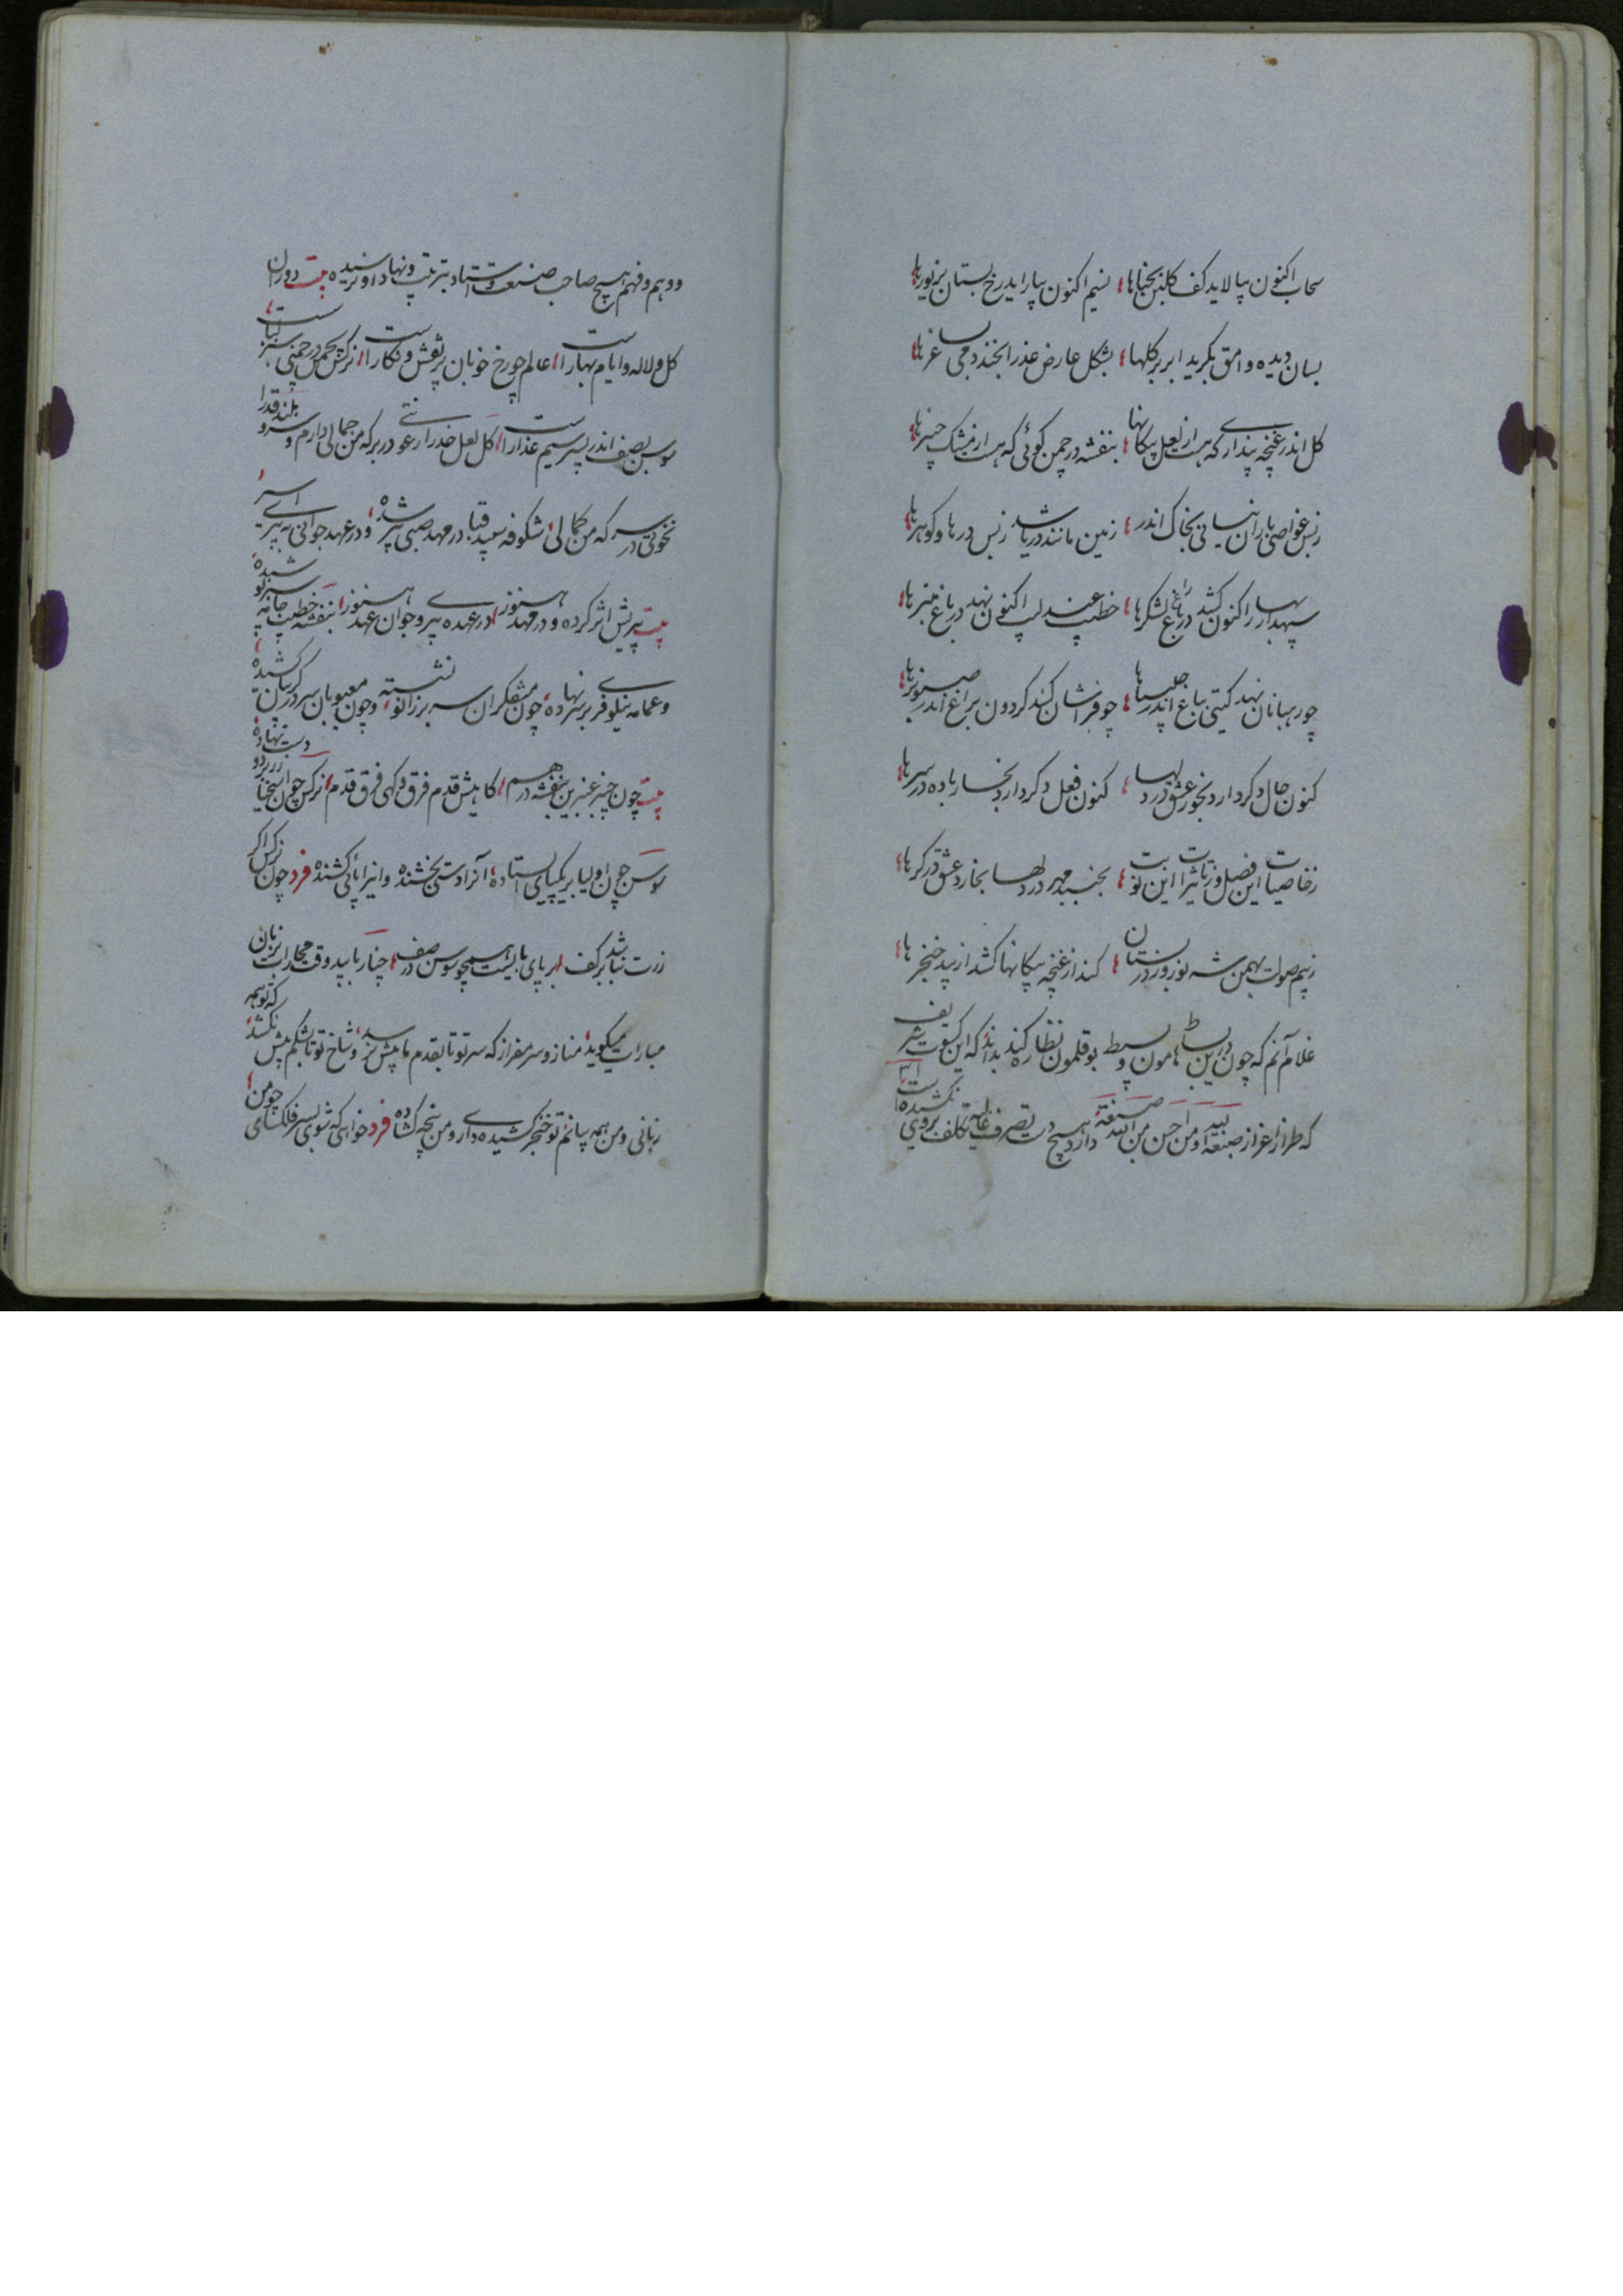 سحاب اکنون بیالاید کف گلبن بحناها نسیم اکنون بیاراید رخ بستان بزیورها
بسان دیده وامق بگرید ابر بر گلها بشکل عارض عذرا بخندد می بساغرها
کل اندر غنچه پنداری که هست از لعل پیکانها بنفشه در چمن کوئی که هست از مشک چنبرها
زبس غواصی باران نیسانی بخاک اندر زمین مانند دریا شد زبس درها و کوهرها
سپهدار بهار اکنون کشد در راغ لشکرها خطیب عندلیب اکنون نهد در باغ منبرها
چو رهبانان نهد کیتی بباغ اندر صلیبها چو فراشان کند کردون براغ اندر صنوبرها
کنون حال دکر دارد بخور عشق در دلها کنون فعل دکر دارد بخار باده در سرها
زخاصیات این فصل و زتاثیرات این نوبت بجنبد مهر در دلها بخارد عشق در کرها
زبیم صولت بهمن شه نوروز در بستان کند از غنچه پیکانها کشد از بید خنجرها
غلام آنم که چون درین بساط هامون و بسیط بوقلمون نظاره کند بداند که این کسوت شریف
که طراز اعزاز صبغة الله و من احسن من الله صبغة دارد هیچ دست تصرف غالیه تکلف بروی نکشیده است
و وهم و فهم هیچ صاحب صنعت و استاد بترتیب و نهاد او نرسیده بیت دوران
کل و لاله و ایام بهار است عالم چو رخ خوبان پر نقش و نکار است نرکس بچمن در چمنی سبز لباس است
سوسن بصف اندر پسر سیم عذار است کل لعل خد را رعونتی در بر که من جمالی دارم و سرو بلند قد را
نخوتی در سر که من کمالی شکوفه سپید قبا در مهد صبی پیر شده و در عهد جوانی به پیری اسیر
بیت پیریش اثر کرده و در مهد هنوز در عهده پیری و جوان عهد هنوز بنفشه خطیب جامه سر تو شده
و عمامه نیلوفری بر سر نهاده چون متفکران سر بر زانو نشسته و چون معیوبان سر در کریبان کشیده
بیت چون چنبر عنبرین بنفشه در هم کاهیش قدم فرق و کهی فرق قدم نرکس چون اسخیا زر بر دو دست نهاده
سوسن چون اولیا بر یکپای استاده آنرا دستی بخشنده و اینرا پائی کشنده فرد چون نرکس اکر
زرت نباشد بر کف بر پای بایست همچو سوسن در صف چنار با بید وقت مجارات بزبان
مبارات میکوید مناز و سر مفراز که سر تو تا بقدم ما بیش نرسد و شاخ تو تا شکم ما بیش نکشد که تو همه
زبانی و من همه بنانم تو خنجر کشیده داری و من پنجه کشاده فرد خواهی که شوی بسر فلکسای چو من